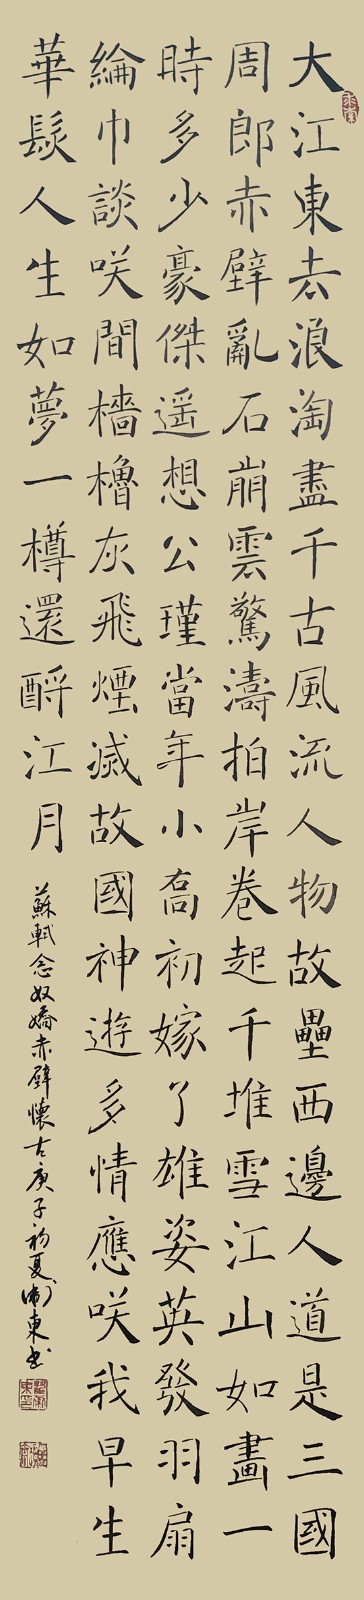 大江東去浪淘盡千古風流人物故壘西邊人道是三國
周郎赤壁亂石崩雲驚濤拍岸卷起千堆雪江山如畫一
時多少豪傑遥想公瑾當年小喬初嫁了雄姿英發羽扇
綸巾談咲間檣櫓灰飛煙滅故國神遊多情應咲我早生
華髮人生如夢一樽還酹江月
蘇軾念奴嬌赤壁懷古庚子初夏衛東書